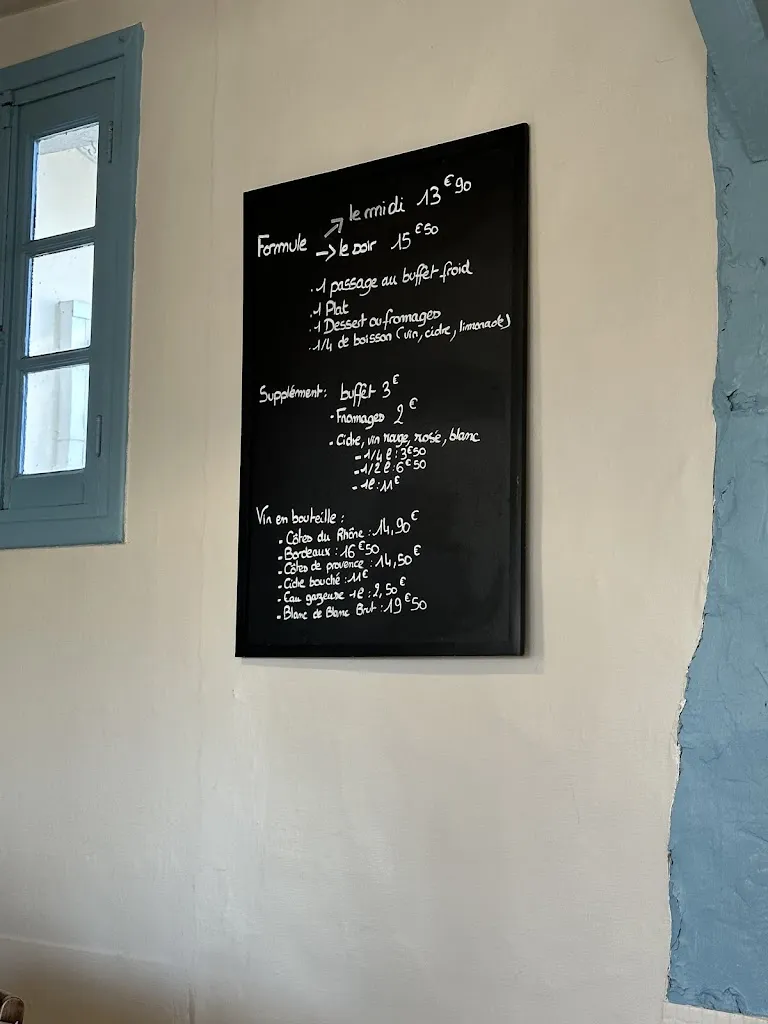 le midi 13€90
Formule
→ le soir 15€50
. 1 passage au buffet froid
. 1 Plat
. 1 Dessert ou fromages
. 1/4 de boisson (vin, cidre, limonade)
Supplément : buffet 3€
- Fromages 2€
- Cidre, vin rouge, rosé, blanc
- 1/4 l : 3€50
- 1/2 l : 6€50
- 1l : 11€
Vin en bouteille :
- Côtes du Rhône : 14,90€
- Bordeaux : 16€50
- Côtes de provence : 14,50€
- Cidre bouché : 11€
- Eau gazeuse 1l : 2,50€
- Blanc de Blanc Brut : 19€50